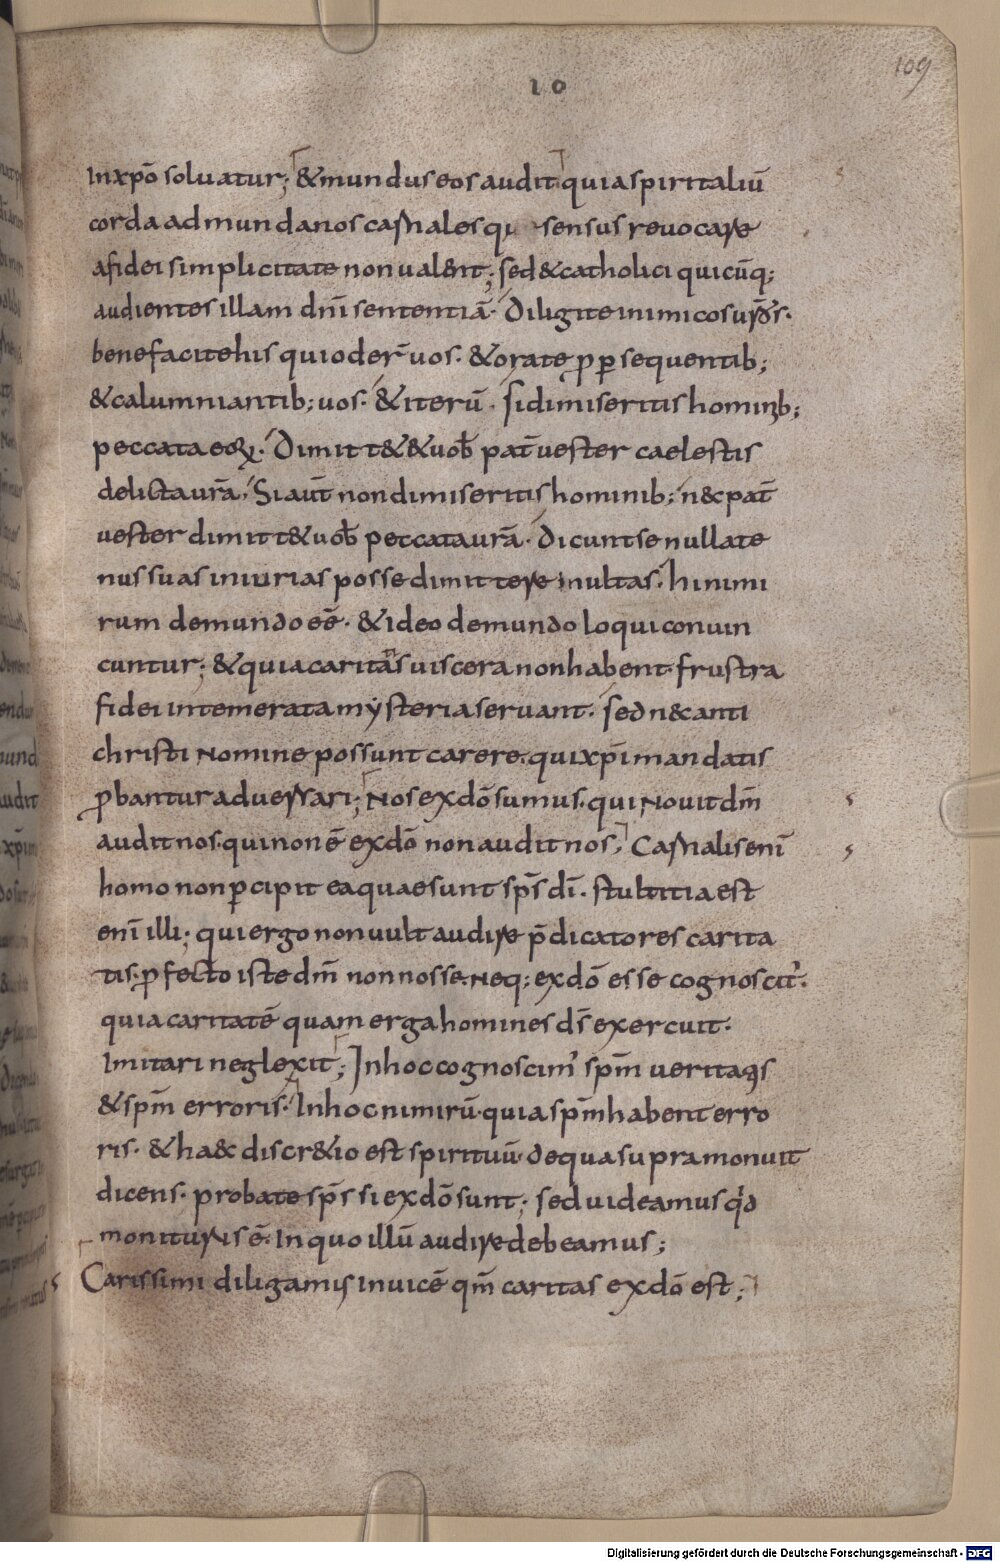 109
10
Inxp̄o soluatur; & mundus eos audit quia spiritaliū
corda ad mundanos carnalesq sensus reuocare
a fidei simplicitate non ualent; sed & catholici quicūq;
audientes illam dn̄i sententiā. Diligite inimicos ur̄os.
benefacite his qui oder̄ uos. & orate ꝓ ꝑsequentib;
& calumniantib; uos. & iterū. si dimiseritis hominib;
peccata eoꝝ. Dimittet & uob̄ pat̄ uester caelestis
delicta ur̄a. Si aut̄ non dimiseritis hominib; nec pat̄
uester dimittet uob̄ peccata ur̄a. Dicunt se nullate
nus suas iniurias posse dimittere inultas. hi nimi
rum de mundo eē. & ideo de mundo loqui conuin
cuntur; & quia caritatis uiscera non habent frustra
fidei intemerata mysteria seruant. sed nec anti
christi Nomine possunt carere. qui xp̄i mandatis
ꝓbantur aduersari; Nos ex dō sumus. qui Nouit dm̄
audit nos. qui non ē ex dō non audit nos. Carnalis eni̅
homo non ꝑcipit ea quae sunt sp̄s dī. stultitia est
eni̅ illi; qui ergo non uult audire p̄dicatores carita
tis. ꝓfecto iste dm̄ non nosse. Neq; ex dō esse cognoscit᷑.
quia caritatē quam erga homines ds̄ exercuit.
Imitari neglexit; In hoc cognoscim᷒ sp̄m ueritatis
& sp̄m erroris. In hoc nimirū quia sp̄m habent erro
ris. & haec discretio est spirituū de qua supra monuit
dicens. probate sp̄s si ex dō sunt; sed uideamus qd̄
moniturus ē. In quo illū audire debeamus;
Carissimi diligamus inuicē qm̄ caritas ex dō est;
Digitalisierung gefördert durch die Deutsche Forschungsgemeinschaft - DFG